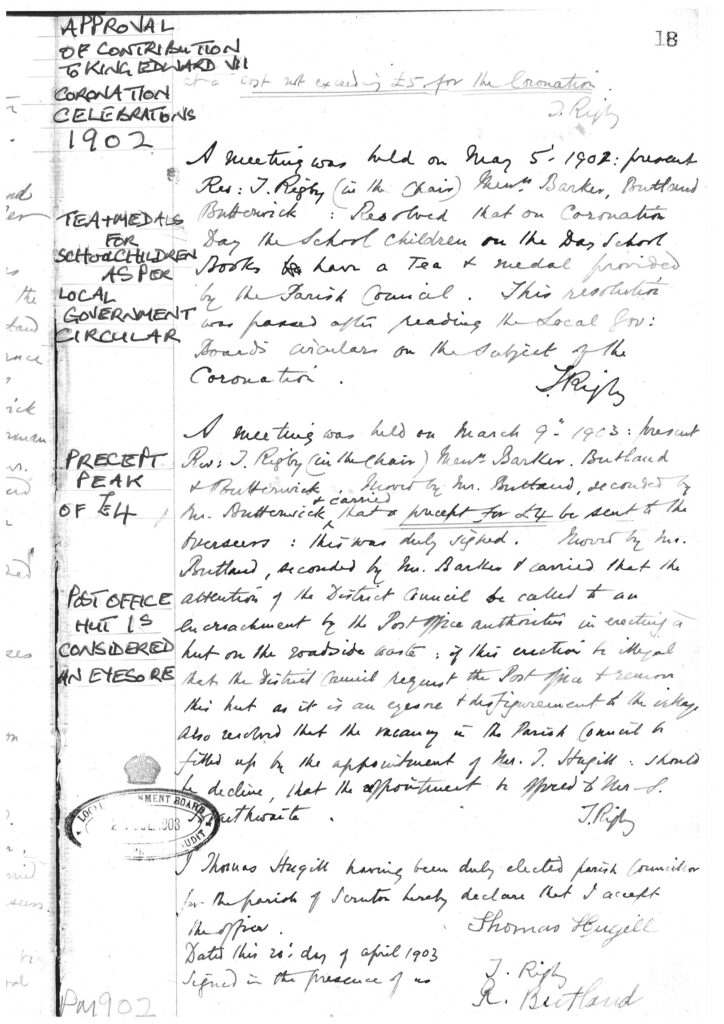 18
APPROVAL
OF CONTRIBUTION
TO KING EDWARD VII
CORONATION
CELEBRATIONS
1902
TEA + MEDALS
FOR
SCHOOLCHILDREN
AS PER
LOCAL
GOVERNMENT
CIRCULAR
PRECEPT
PEAK
OF £4
POST OFFICE
HUT IS
CONSIDERED
AN EYESORE
PM902
at a cost not exceeding £5 for the Coronation.
T. Rigby
A meeting was held on May 5' 1902: present
Rev: T. Rigby (in the Chair) Messrs Barker, Butland
Butterwick : Resolved that on Coronation
Day the School children on the Day School
Books have a Tea & medal provided
by the Parish Council. This resolution
was passed after reading the Local Gov:
Board's circulars on the subject of the
Coronation.
T. Rigby
A meeting was held on March 9" 1903: present
Rev: T. Rigby (in the Chair) Messrs Barker, Butland
& Butterwick. Moved by Mr. Butland, seconded by
Mr. Butterwick & carried that a precept for £4 be sent to the
overseers : this was duly signed. Moved by Mr.
Butland, seconded by Mr. Barker & carried that the
attention of the District Council be called to an
encroachment by the Post Office authorities in erecting a
hut on the roadside waste : if this erection be illegal
that the District Council request the Post Office to remove
this hut as it is an eyesore & disfigurement to the village
also resolved that the vacancy in the Parish Council be
filled up by the appointment of Mr. T. Hugill : should
he decline, that the appointment be offered to Mr. S.
T. Rigby
LOCAL GOVERNMENT BOARD
1903
AUDIT
I Thomas Hugill having been duly elected parish Councillor
for the parish of Scruton hereby declare that I accept
the office.
Thomas Hugill
Dated this 20' day of april 1903
Signed in the presence of us
T. Rigby
R. Butland